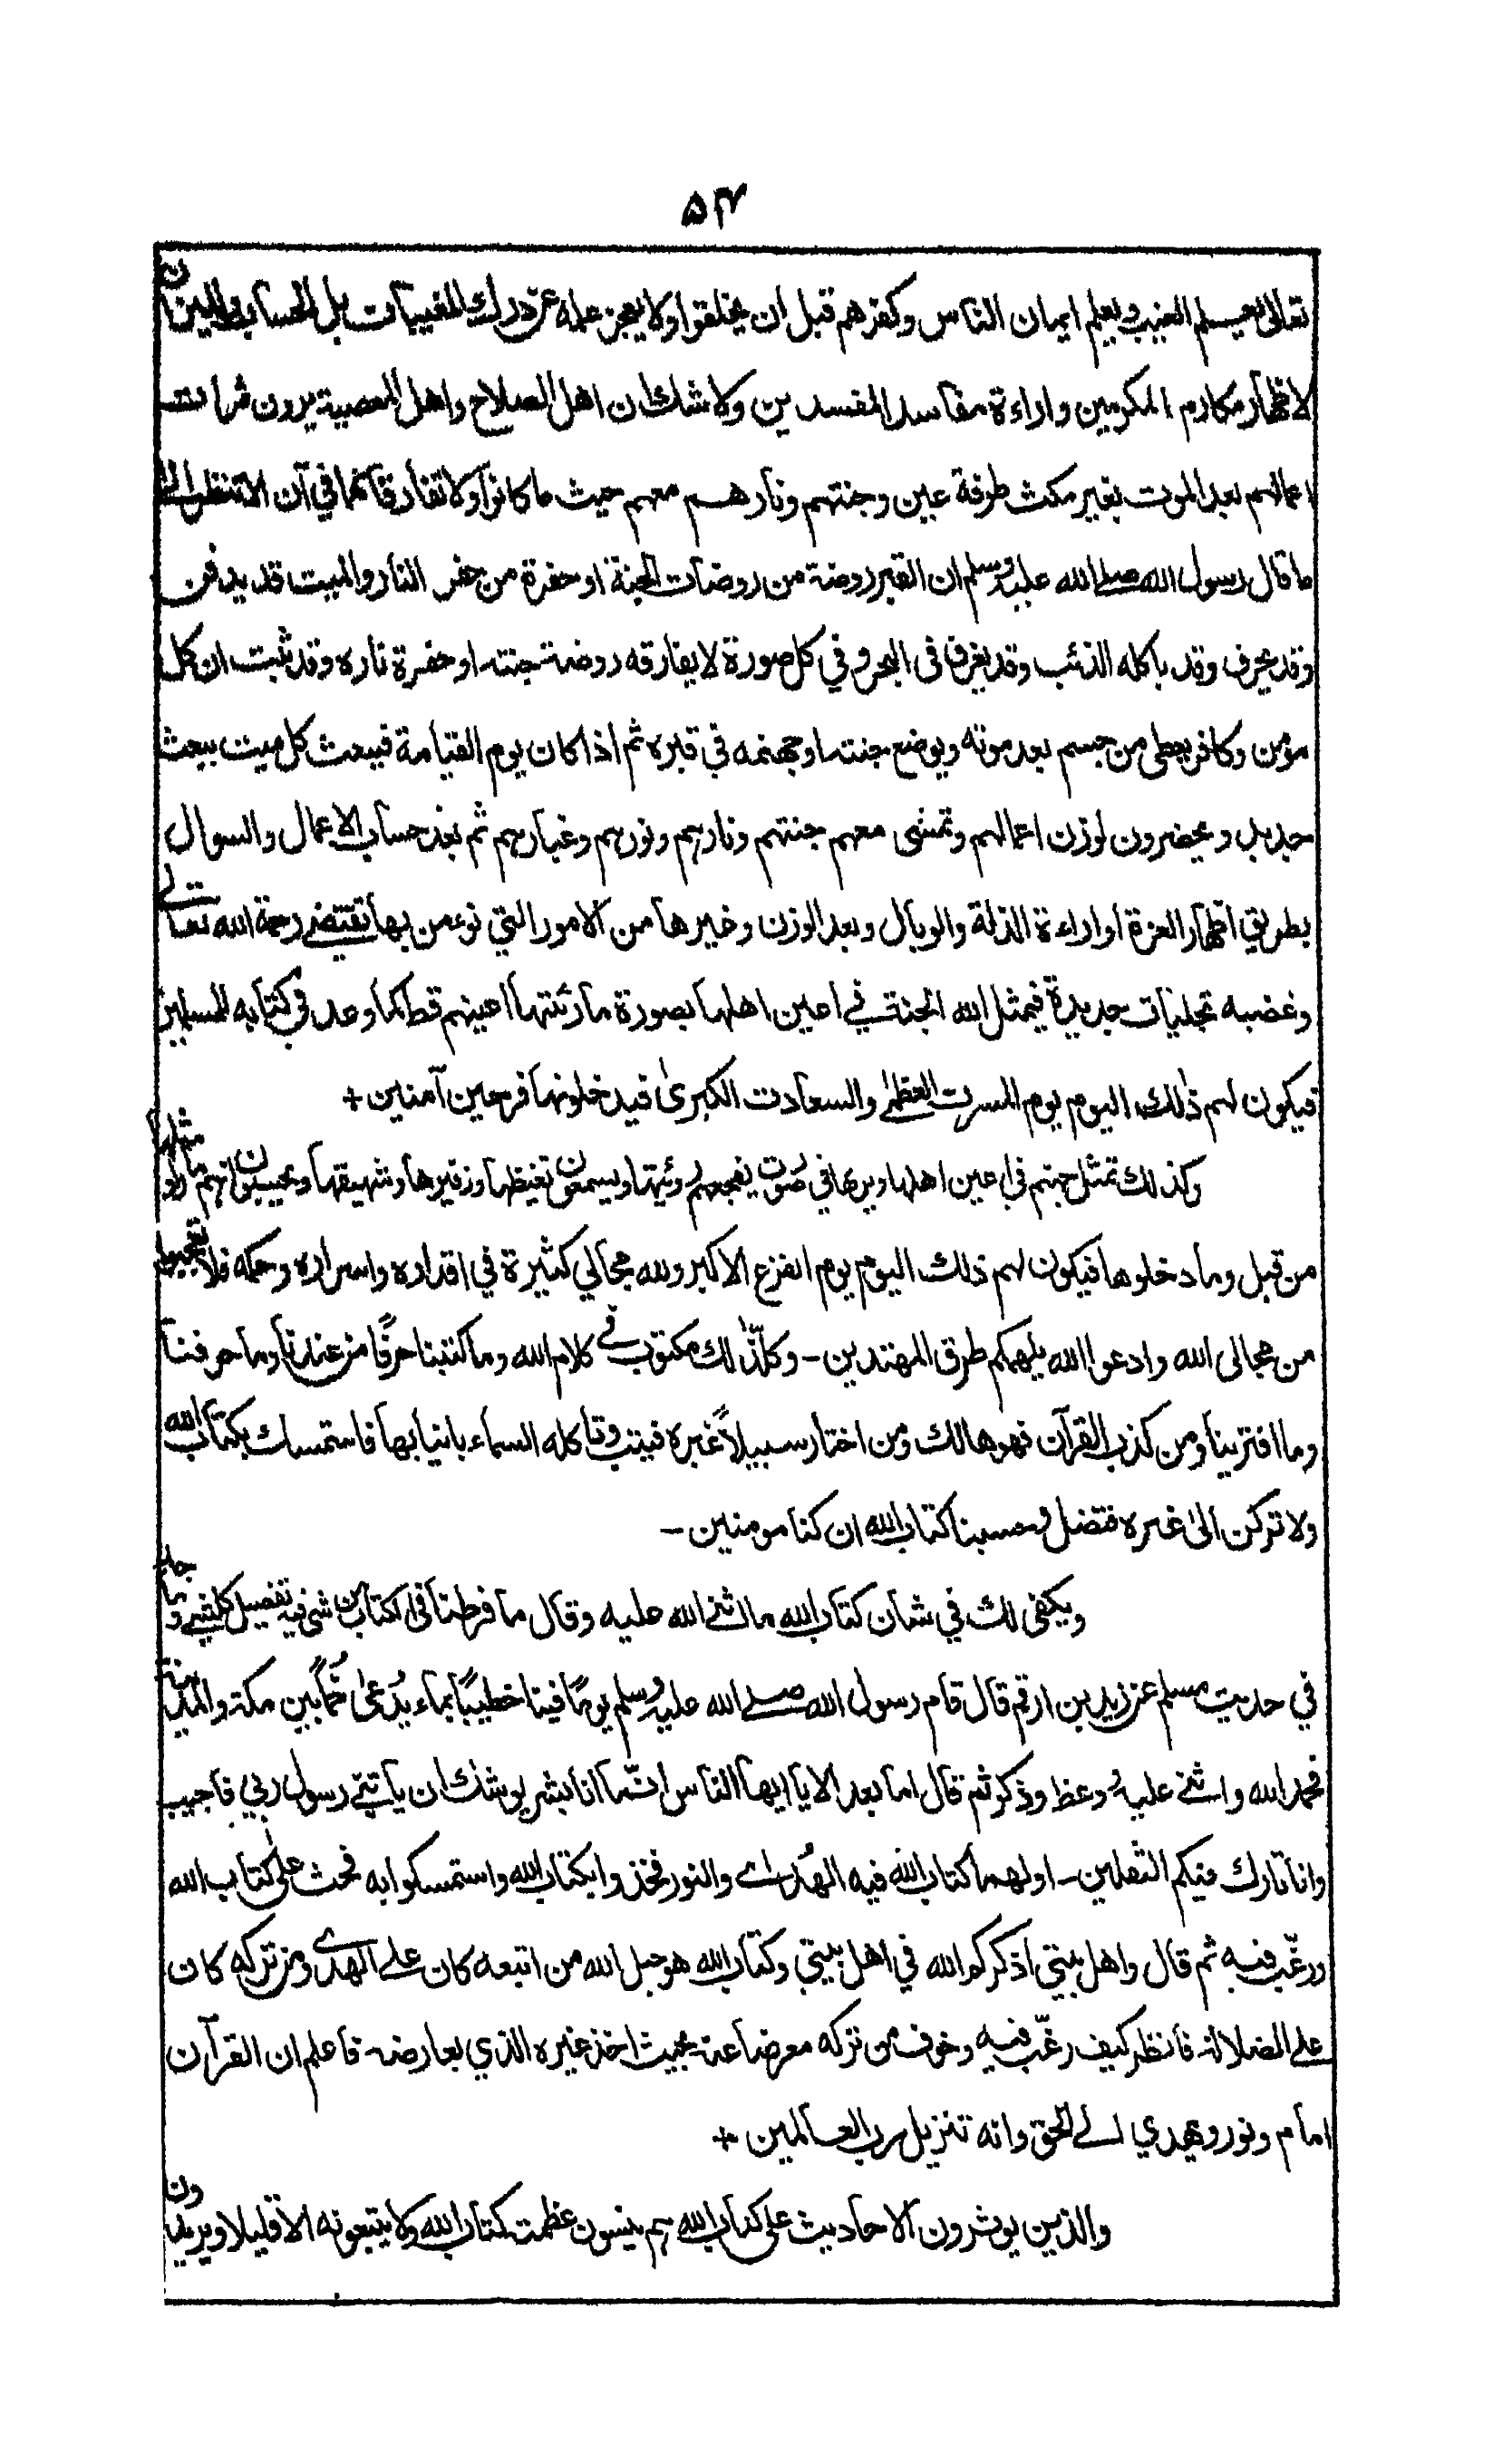 ۵۴
تعالى يعلم الغيب ويعلم ايمان الناس وكفرهم قبل ان يخلقوا ولا يعجز علمه عن درك المغيبات بل الحساب والميزان
لاظهار مكارم المكرمين واراءة مفاسد المفسدين ولا شك ان اهل الصلاح واهل المعصية يرون ثمرات
اعمالهم بعد الموت بغير مكث طرفة عين وجنتهم ونارهم معهم حيث ما كانوا ولا تفارقانهما في آن الا تنظر الى
ما قال رسول الله صلى الله عليه وسلم ان القبر روضة من روضات الجنة او حفرة من حفر النار والميت قد يدفن
وقد يحرق وقد ياكله الذئب وقد يغرق فى البحر وفي كل صورة لا يفارقه روضة جنته او حفرة ناره وقد ثبت ان كل
مؤمن وكافر يعطى من جسم بعد موته ويوضع جنته او جهنمه في قبره ثم اذا كان يوم القيامة فيبعث كل ميت ببعث
جديد ويحضرون لوزن اعمالهم وتمشى معهم جنتهم ونارهم ونورهم وغبارهم ثم بعد حساب الاعمال والسوال
بطريق اظهار العزة او اراءة الذلة والوبال وبعد الوزن وغيرها من الامور التي نؤمن بها تقتضي رحمة الله تعالى
وغضبه تجليات جديدة فيمثل الله الجنة في اعين اهلها بصورة ما رئتها اعينهم قط كما وعد في كتابه للمسلمين
فيكون لهم ذٰلك اليوم يوم المسرت العظمٰى والسعادت الكبرىٰ فيدخلونها فرحين آمنين +
وكذلك تمثل جهنم في اعين اهلها ويريها في صورت يفجعهم رؤيتها ويسمعون تغيظها وزفيرها وشهيقها ويحسبون انهم ما راو مثلها
من قبل وما دخلوها فيكون لهم ذلك اليوم يوم الفزع الاكبر ولله مجالي كثيرة في اقداره واسراره وحكمه فلا تعجبوا
من مجالى الله وادعوا الله يلهمكم طرق المهتدين - وكلّ ذٰلك مكتوب في كلام الله وما كتبنا حرفًا من عندنا وما حرفنا
وما افترينا ومن كذب القرآن فهو هالك ومن اختار سبيلاً غيره فيتب وتاكله السماء بانيابها فاستمسك بكتاب الله
ولا تركن الىٰ غيره فتضل وحسبنا كتاب الله ان كنا مومنين -
ويكفى لك في شان كتاب الله ما اثنى الله عليه وقال ما فرطنا فى الكتاب من شى فيه تفصيل كل شيء وما جاء
في حديث مسلم عن زيد بن ارقم قال قام رسول الله صلى الله عليه وسلم يومًا فينا خطيبًا بماء يُدعىٰ خُمًّا بين مكة والمدينة
فحمد الله واثنى عليه ووعظ وذكر ثم قال اما بعد الا يا ايها الناس انّما انا بشر يوشك ان ياتيني رسول ربي فاجيب
وانا تارك فيكم الثقلين - اولهما كتاب الله فيه الهُدٰى والنور فخذوا بكتاب الله واستمسكوا به فحث على كتاب الله
ورغّب فيه ثم قال واهل بيتي اذكركم الله في اهل بيتي وكتاب الله هو حبل الله من اتبعه كان على الهدى ومن تركه كان
على الضلالة فانظر كيف رغّب فيه وخوف من تركه معرضا عنه بحيث اخذ غيره الذي يعارضه فاعلم ان القرآن
امام ونور ويهدي الى الحق وانه تنزيل رب العالمين +
والذين يوثرون الاحاديث على كتاب الله هم ينسون عظمت كتاب الله ولا يتبعونه الا قليلا ويريدون